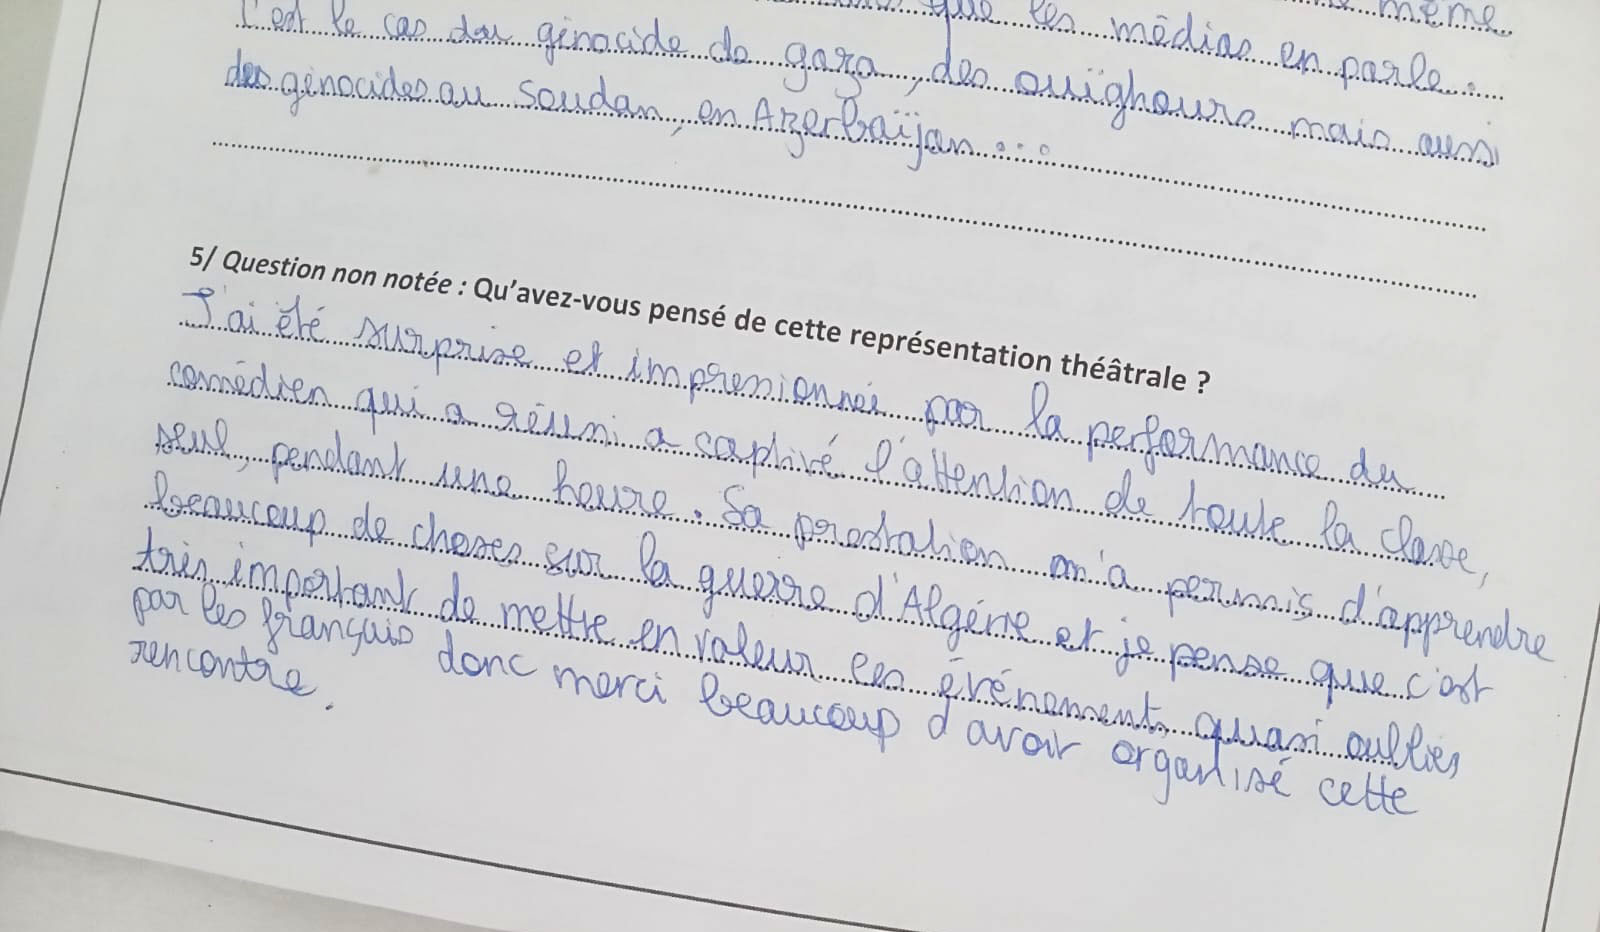 que les médias en parle.
même
C'est le cas du génocide de gaza, des ouïghours mais aussi
des génocides au Soudan, en Azerbaïjan...
5/ Question non notée : Qu'avez-vous pensé de cette représentation théâtrale ?
J'ai été surprise et impressionnée par la performance du
comédien qui a réussi a captivé l'attention de toute la classe,
seul, pendant une heure. Sa prestation m'a permis d'apprendre
beaucoup de choses sur la guerre d'Algérie et je pense que c'est
très important de mettre en valeur ces événements quasi oubliés
par les français donc merci beaucoup d'avoir organisé cette
rencontre.